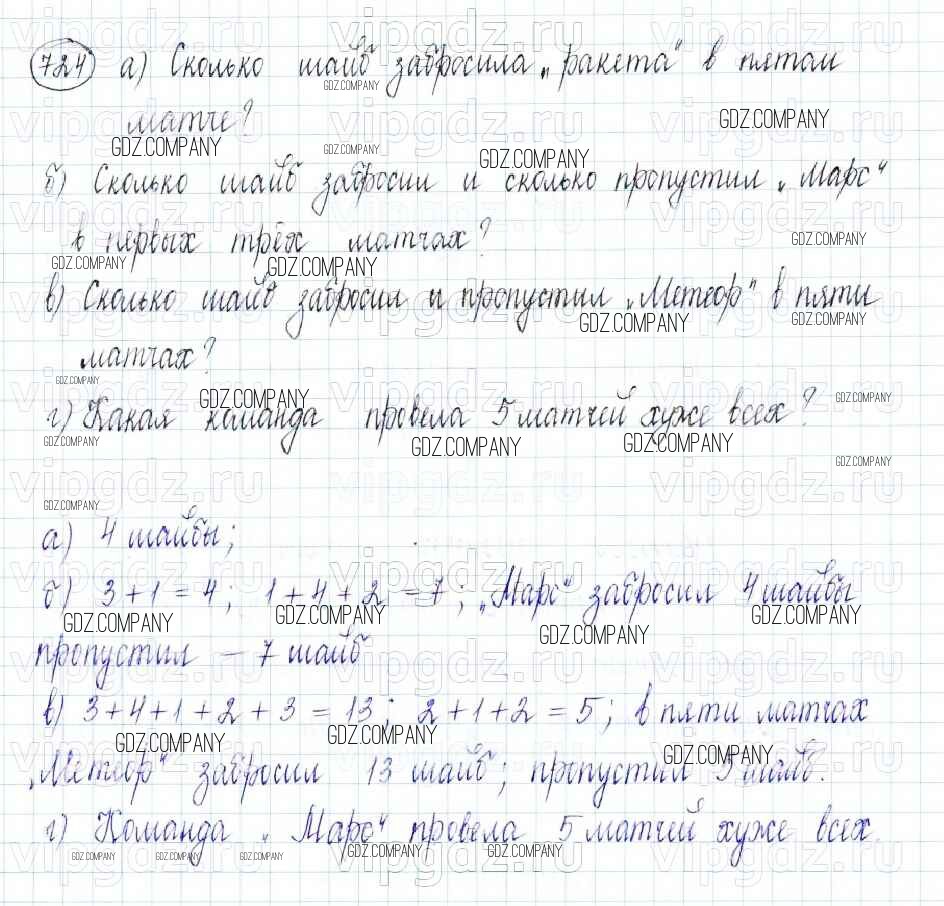 724 а) Сколько шайб забросила „ракета“ в пятом
матче?
б) Сколько шайб забросил и сколько пропустил „Марс“
в первых трёх матчах?
в) Сколько шайб забросил и пропустил „Метеор“ в пяти
матчах?
г) Какая команда провела 5 матчей хуже всех?
а) 4 шайбы;
б) 3 + 1 = 4; 1 + 4 + 2 = 7; „Марс“ забросил 4 шайбы
пропустил – 7 шайб
в) 3 + 4 + 1 + 2 + 3 = 13; 2 + 1 + 2 = 5; в пяти матчах
„Метеор“ забросил 13 шайб; пропустил 5 шайб.
г) Команда „Марс“ провела 5 матчей хуже всех.
vipgdz.ru
GDZ.COMPANY